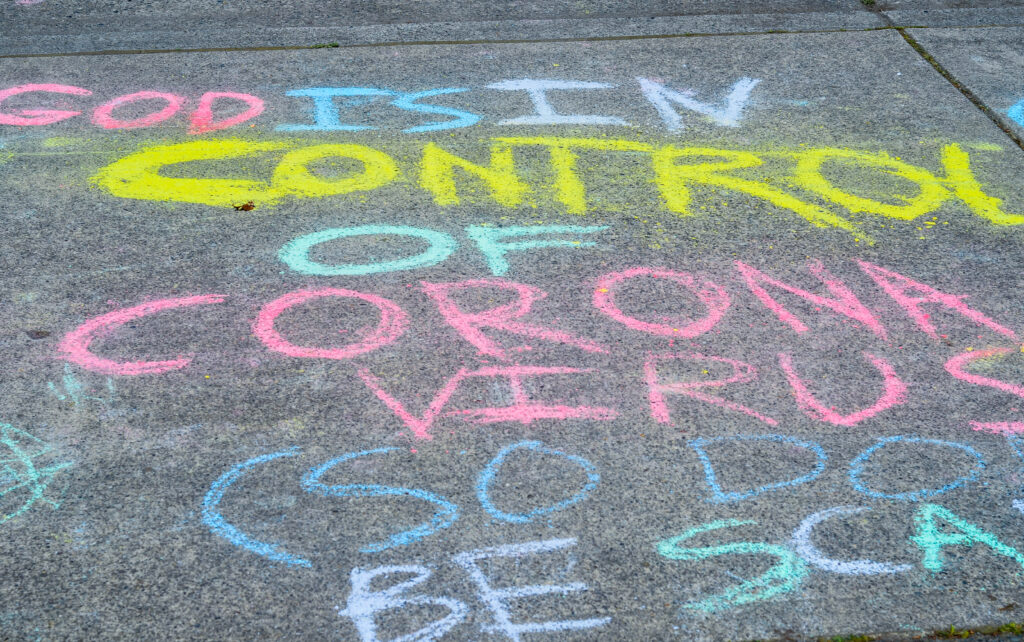 GOD IS IN
CONTROL
OF
CORONA
VIRUS
(SO DO
BE SCA